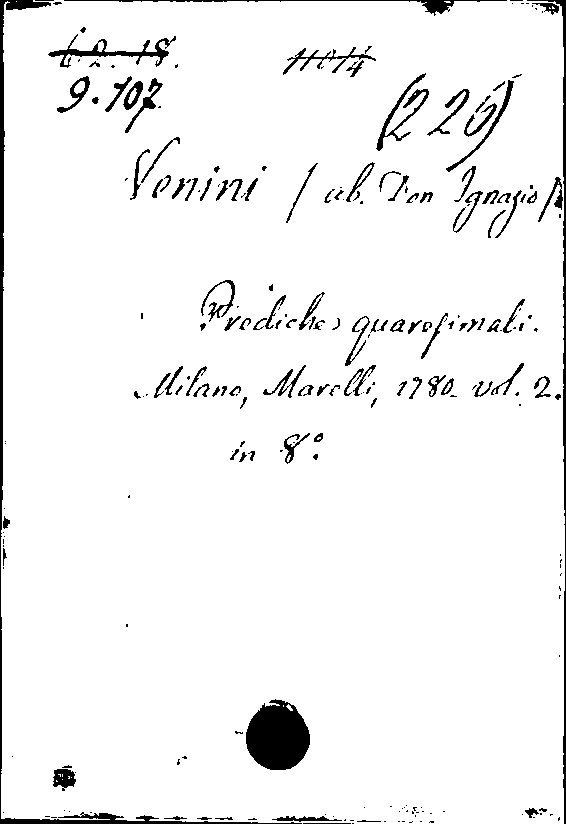 6.2.18. 11014
9.107
(226)
Venini / ab. Don Ignazio /
Prediche quaresimali.
Milano, Marelli, 1780. vol. 2.
in 8°